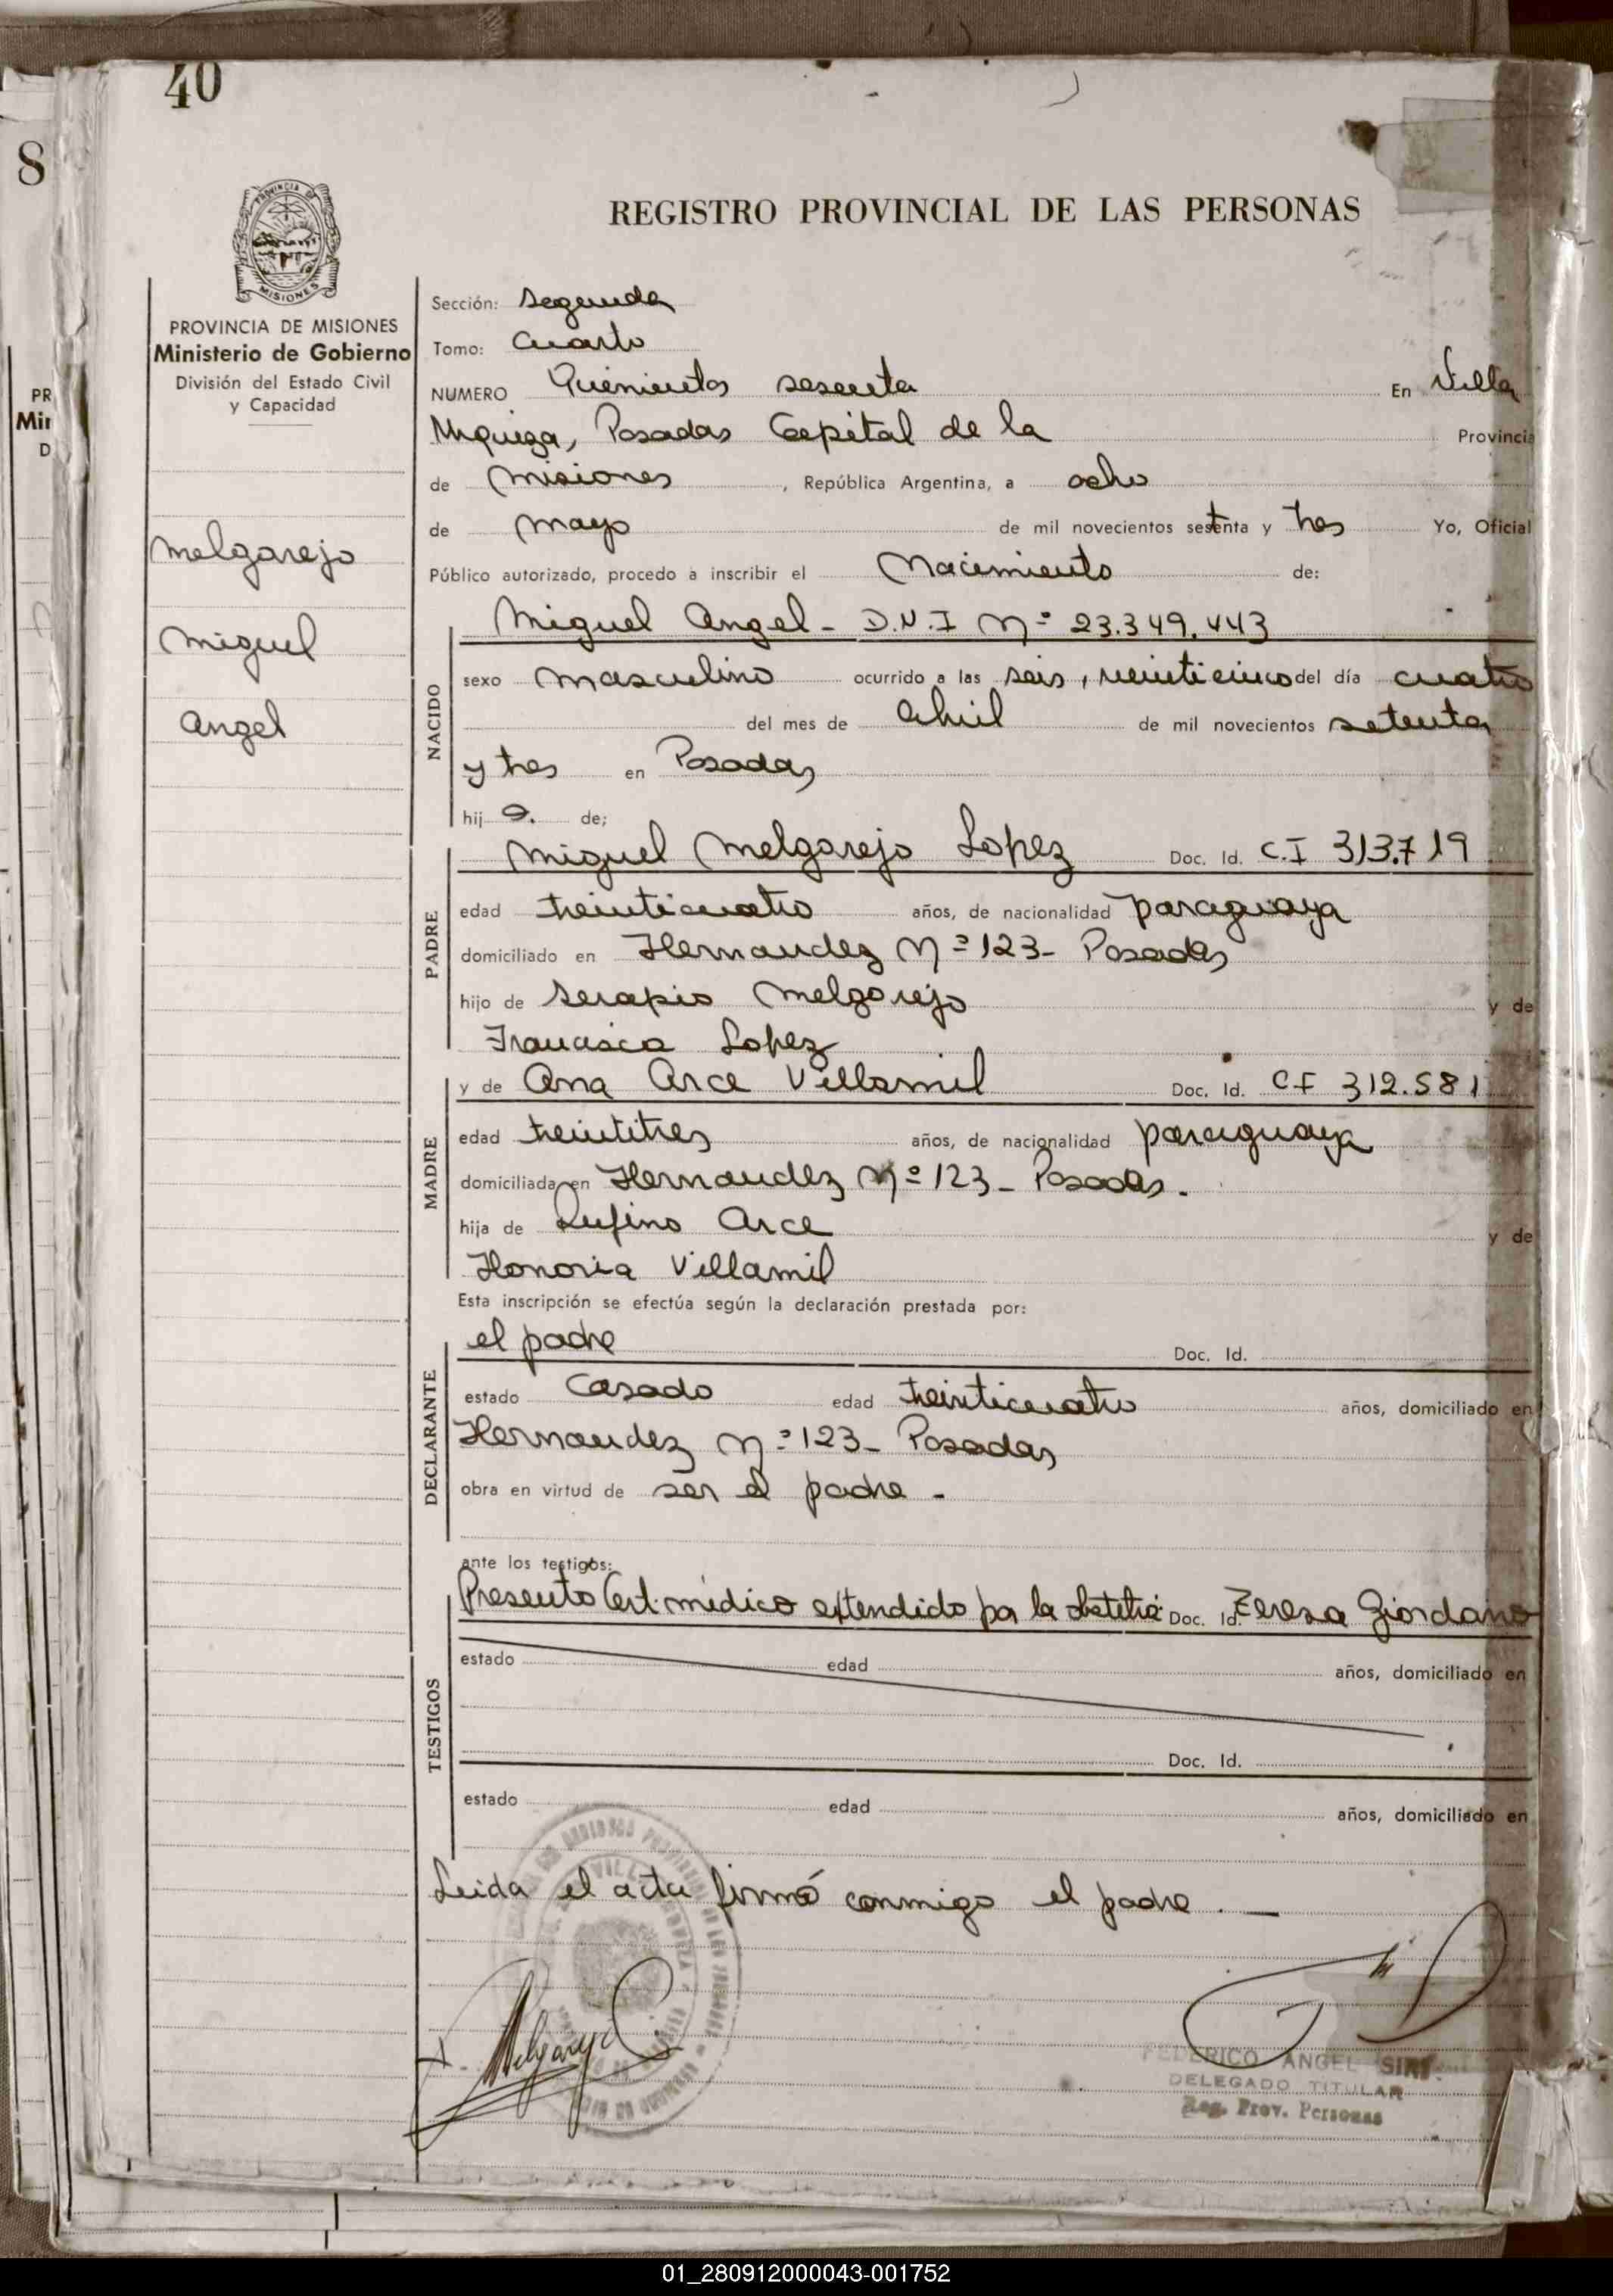 40
8
REGISTRO PROVINCIAL DE LAS PERSONAS
PROVINCIA DE
MISIONES
PROVINCIA DE MISIONES
Ministerio de Gobierno
División del Estado Civil
y Capacidad
PR
Min
D
Melgarejo
Miguel
Angel
Sección: Segunda
Tomo: Cuarto
NUMERO Quinientos sesenta En Villa
Urquiza, Posadas Capital de la Provincia
de Misiones, República Argentina, a ocho
de Mayo de mil novecientos setenta y tres Yo, Oficial
Público autorizado, procedo a inscribir el Nacimiento de:
Miguel Angel - D.N.I Nº 23.349.443
NACIDO
sexo Masculino ocurrido a las seis, veinticinco del día cuatro
del mes de Abril de mil novecientos setenta
y tres en Posadas
hij o. de;
PADRE
Miguel Melgarejo Lopez Doc. Id. C.I 313.719
edad treinticuatro años, de nacionalidad paraguaya
domiciliado en Hernandez Nº 123- Posadas
hijo de Serapio Melgarejo y de
Francisca Lopez
MADRE
y de Ana Arce Villamil Doc. Id. C.I 312.581
edad treintitres años, de nacionalidad paraguaya
domiciliada en Hernandez Nº 123- Posadas.
hija de Rufino Arce y de
Honoria Villamil
Esta inscripción se efectúa según la declaración prestada por:
DECLARANTE
el padre Doc. Id.
estado Casado edad treinticuatro años, domiciliado en
Hernandez Nº 123- Posadas
obra en virtud de ser el padre -
ante los testigos:
TESTIGOS
Presento Cert. médico extendido por la obstetra Doc. Id. Teresa Giordano
estado edad años, domiciliado en
Doc. Id.
estado edad años, domiciliado en
Leida el acta firmó conmigo el padre. —
Melgarejo
FEDERICO ANGEL SIRI
DELEGADO TITULAR
Reg. Prov. Personas
01_280912000043-001752